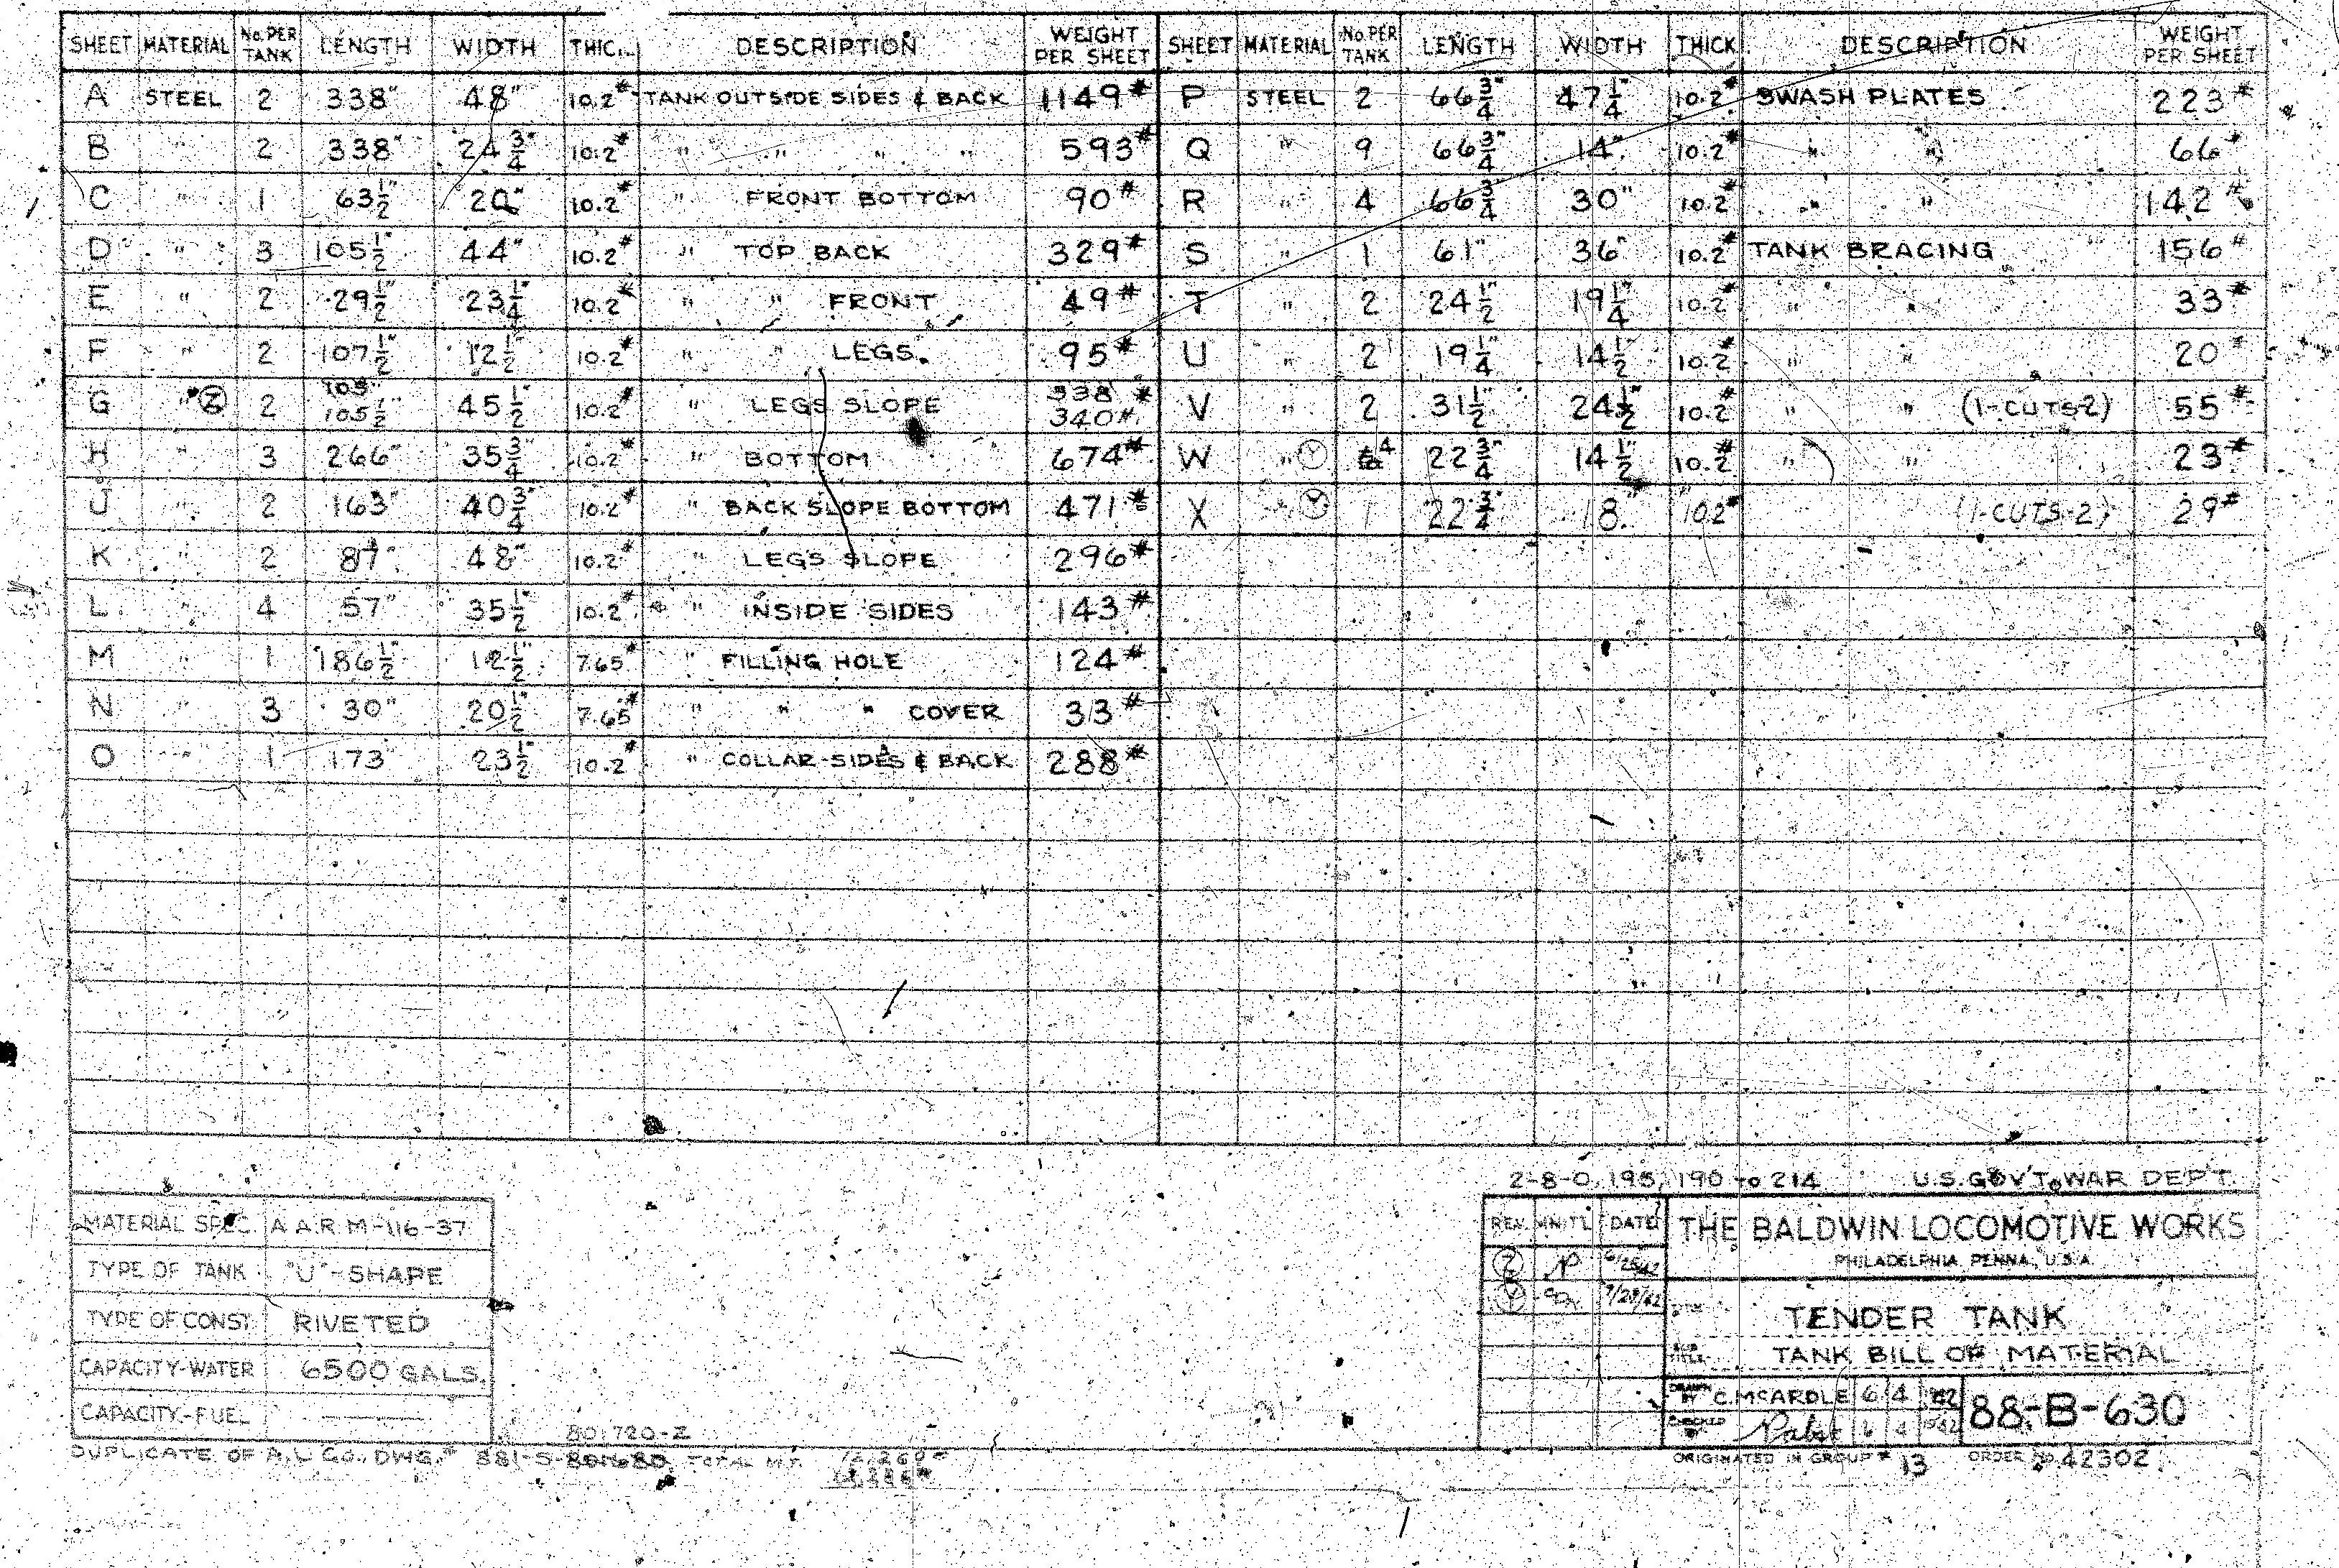 SHEET MATERIAL No. PER TANK LENGTH WIDTH THIC DESCRIPTION WEIGHT PER SHEET SHEET MATERIAL No. PER TANK LENGTH WIDTH THICK. DESCRIPTION WEIGHT PER SHEET
A STEEL 2 338" 48" 10.2# TANK OUTSIDE SIDES & BACK 1149# P STEEL 2 66 3/4" 47 1/4" 10.2# SWASH PLATES 223#
B " 2 338" 24 3/4" 10.2# " " " " 593# Q " 9 66 3/4" 14" 10.2# " " 66#
C " 1 63 1/2" 20" 10.2# " FRONT BOTTOM 90# R " 4 66 3/4" 30" 10.2# " " 142#
D " 3 105 1/2" 44" 10.2# " TOP BACK 329# S " 1 61" 36" 10.2# TANK BRACING 156#
E " 2 29 1/2" 23 1/4" 10.2# " " FRONT 49# T " 2 24 1/2" 19 1/4" 10.2# " " 33#
F " 2 107 1/2" 12 1/2" 10.2# " " LEGS 95# U " 2 19 1/4" 14 1/2" 10.2# " " 20#
G " Z 2 105" 105 1/2" 45 1/2" 10.2# " LEGS SLOPE 338# 340# V " 2 31 1/2" 24 1/2" 10.2# " " (1-CUTS-2) 55#
H " 3 266" 35 3/4" 10.2# " BOTTOM 674# W " Y 4 22 3/4" 14 1/2" 10.2# " " 23#
J " 2 163" 40 3/4" 10.2# " BACK SLOPE BOTTOM 471# X " Y 1 22 3/4" 18" 10.2# (1-CUTS-2) 29#
K " 2 87" 48" 10.2# " LEGS SLOPE 296#
L " 4 57" 35 1/2" 10.2# " INSIDE SIDES 143#
M " 1 186 1/2" 12 1/2" 7.65# " FILLING HOLE 124#
N " 3 30" 20 1/2" 7.65# " " " COVER 33#
O " 1 173" 23 1/2" 10.2# " COLLAR-SIDES & BACK 288#
2-8-0, 195, 190 to 214 U.S. GOV'T. WAR DEPT.
MATERIAL SPEC. A.A.R. M-116-37
TYPE OF TANK "U"-SHAPE
TYPE OF CONST. RIVETED
CAPACITY-WATER 6500 GALS.
CAPACITY-FUEL
801720-Z
DUPLICATE OF A.L. Co. DWG. # 881-S-801680 TOTAL WT.
REV. INIT'L DATE
Z 6/25/42
Y 7/29/42
THE BALDWIN LOCOMOTIVE WORKS
PHILADELPHIA, PENNA., U.S.A.
TITLE TENDER TANK
SUB TITLE TANK BILL OF MATERIAL
DRAWN BY C. McARDLE 6 4 1942
CHECKED BY Pabst 6 4 1942
88-B-630
ORIGINATED IN GROUP # 13 ORDER No. 42302